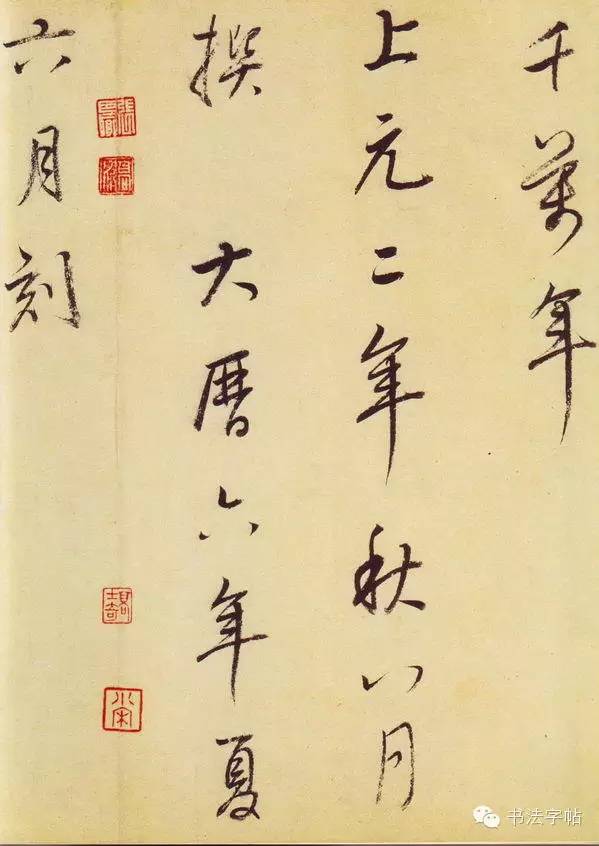 千萬年
上元二年秋八月
撰 大曆六年夏
六月刻
书法字帖